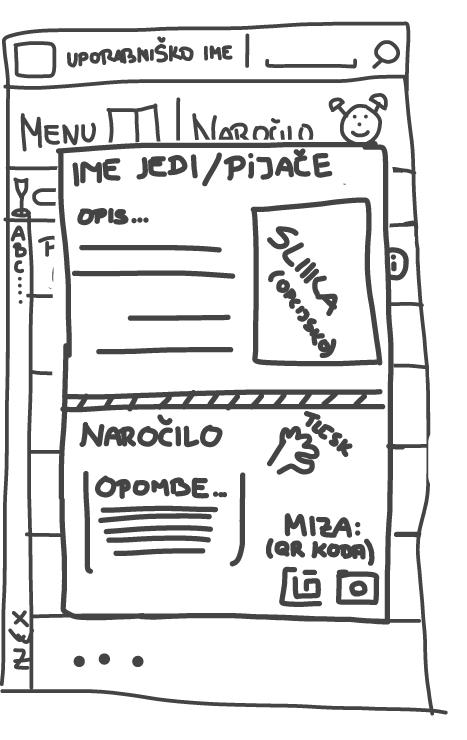 UPORABNIŠKO IME
MENU
NAROČILO
IME JEDI/PIJAČE
OPIS...
SLIIKA
(OPCIJSKO)
A
B
C
F
NAROČILO
TLESK
OPOMBE...
MIZA:
(QR KODA)
X
Z